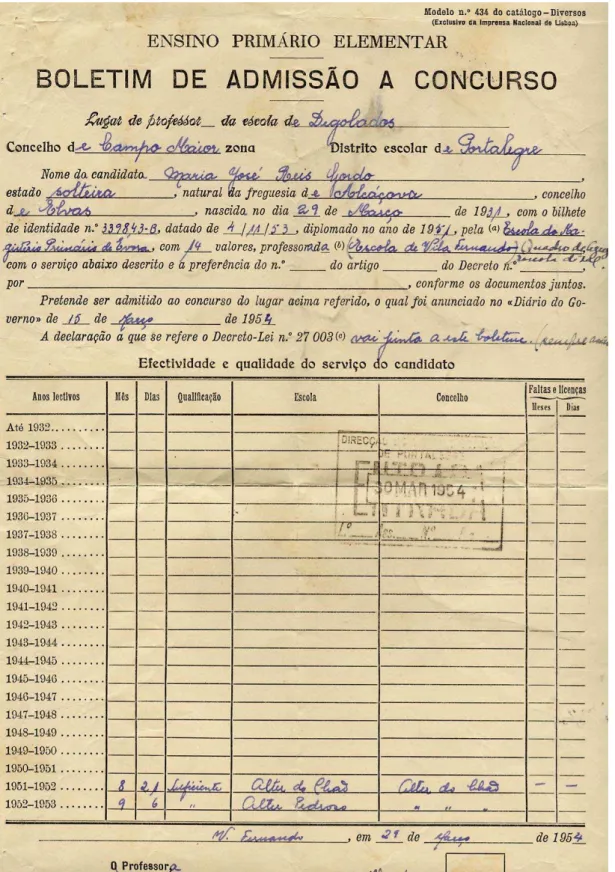 Modelo n.º 434 do catálogo—Diversos
(Exclusivo da Imprensa Nacional de Lisboa)
ENSINO PRIMÁRIO ELEMENTAR
BOLETIM DE ADMISSÃO A CONCURSO
Lugar de professor__ da escola de Degolados
Concelho de Campo Maior zona Distrito escolar de Portalegre
Nome da candidata Maria José Reis Gordo,
estado solteira, natural da freguesia de Alcáçova, concelho
de Elvas, nascida no dia 29 de Março de 1931, com o bilhete
de identidade n.º 339843-B, datado de 4/11/53, diplomado no ano de 1951, pela (a) Escola do Ma-
gistério Primário de Évora, com 14 valores, professora da (b) (Escola de Vila Fernando) (Quadro de
com o serviço abaixo descrito e a preferência do n.º ____ do artigo ____ do Decreto n.º
por ____, conforme os documentos juntos.
Pretende ser admitido ao concurso do lugar acima referido, o qual foi anunciado no «Diário do Go-
verno» de 15 de Março de 1954
A declaração a que se refere o Decreto-Lei n.º 27 003 (c) vai junta a este boletim.
Efectividade e qualidade do serviço do candidato
Anos lectivos Mês Dias Qualificação Escola Concelho Faltas e licenças
Meses Dias
Até 1932..........
1932-1933 ........
1933-1934 ........
1934-1935 ........
1935-1936 ........
1936-1937 ........
1937-1938 ........
1938-1939 ........
1939-1940 ........
1940-1941 ........
1941-1942 ........
1942-1943 ........
1943-1944 ........
1944-1945 ........
1945-1946 ........
1946-1947 ........
1947-1948 ........
1948-1949 ........
1949-1950 ........
1950-1951 ........
1951-1952 ........ 8 21 Suficiente Alter do Chão Alter do Chão — —
1952-1953 ........ 9 6 " Alter Pedroso " " "
DE PORTALEGRE
30 MAR 1954
ENTRADA
V. Fernando, em 29 de Março de 1954
O Professora